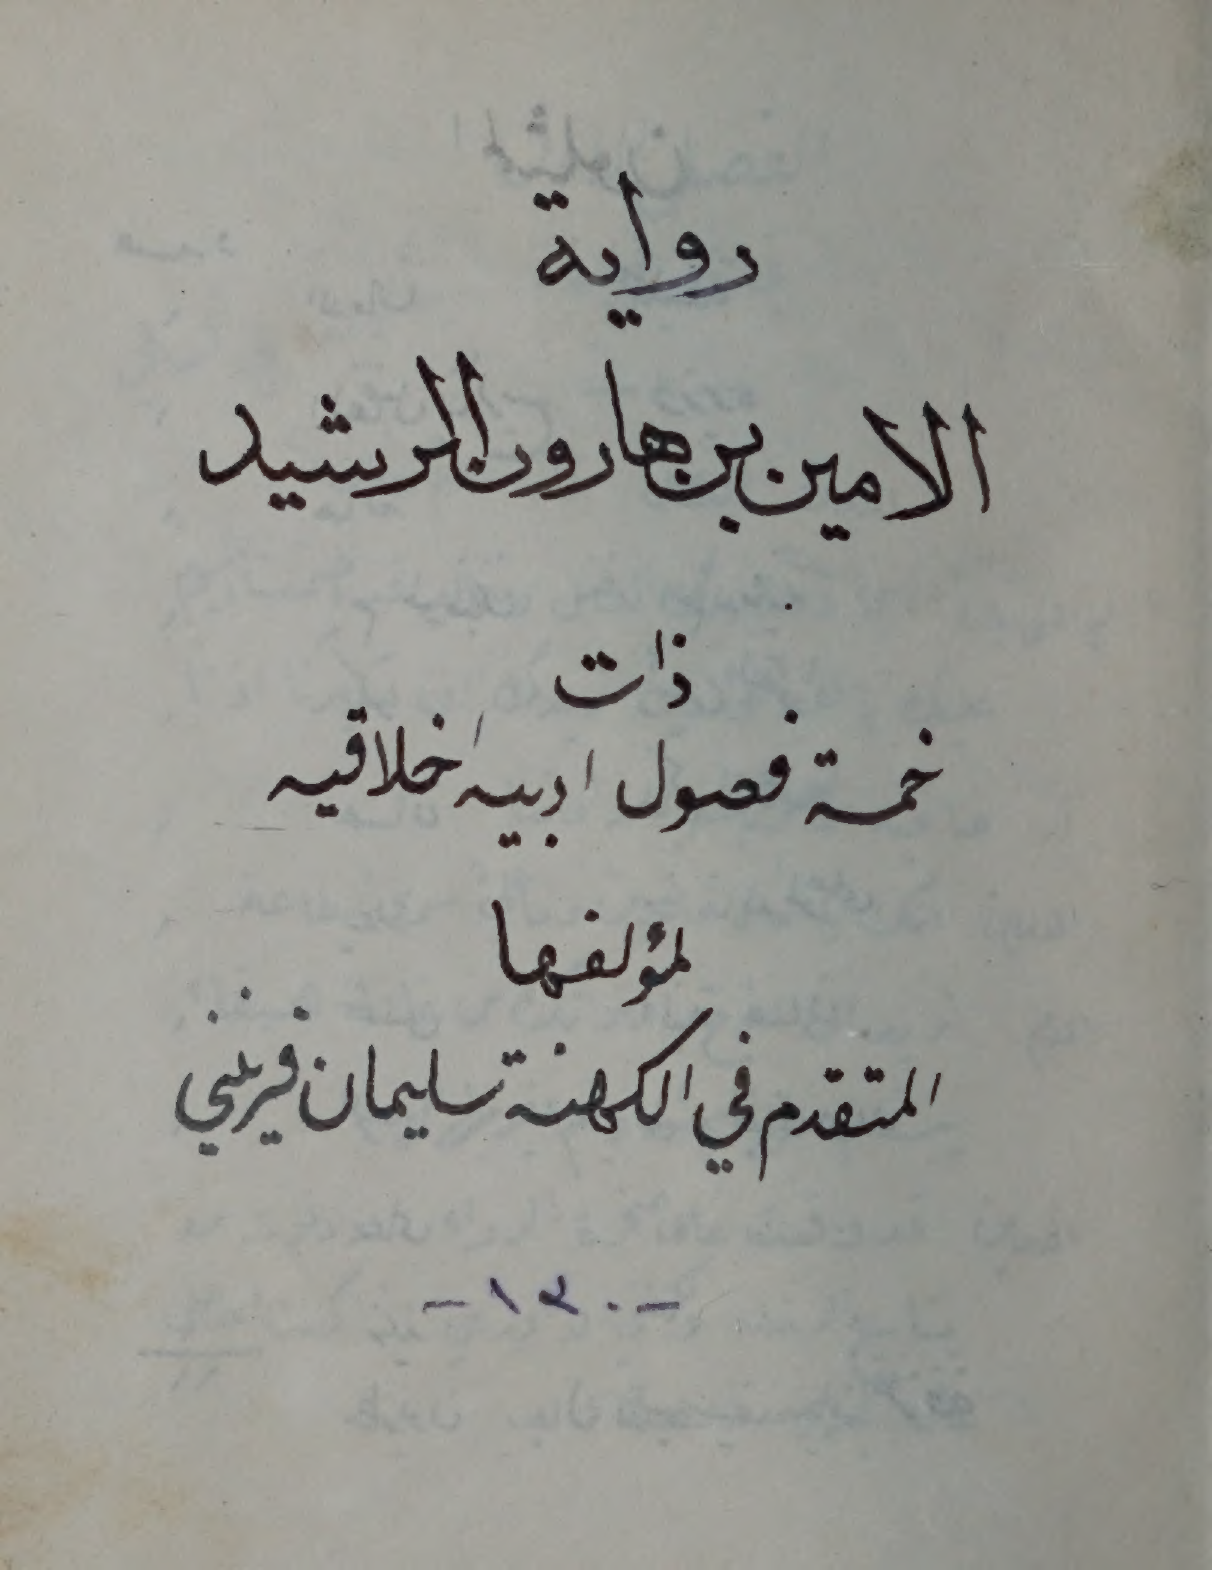 رواية
الامين بن هارون الرشيد
ذات
خمسة فصول ادبيه اخلاقيه
لمؤلفها
المتقدم في الكهنة سليمان